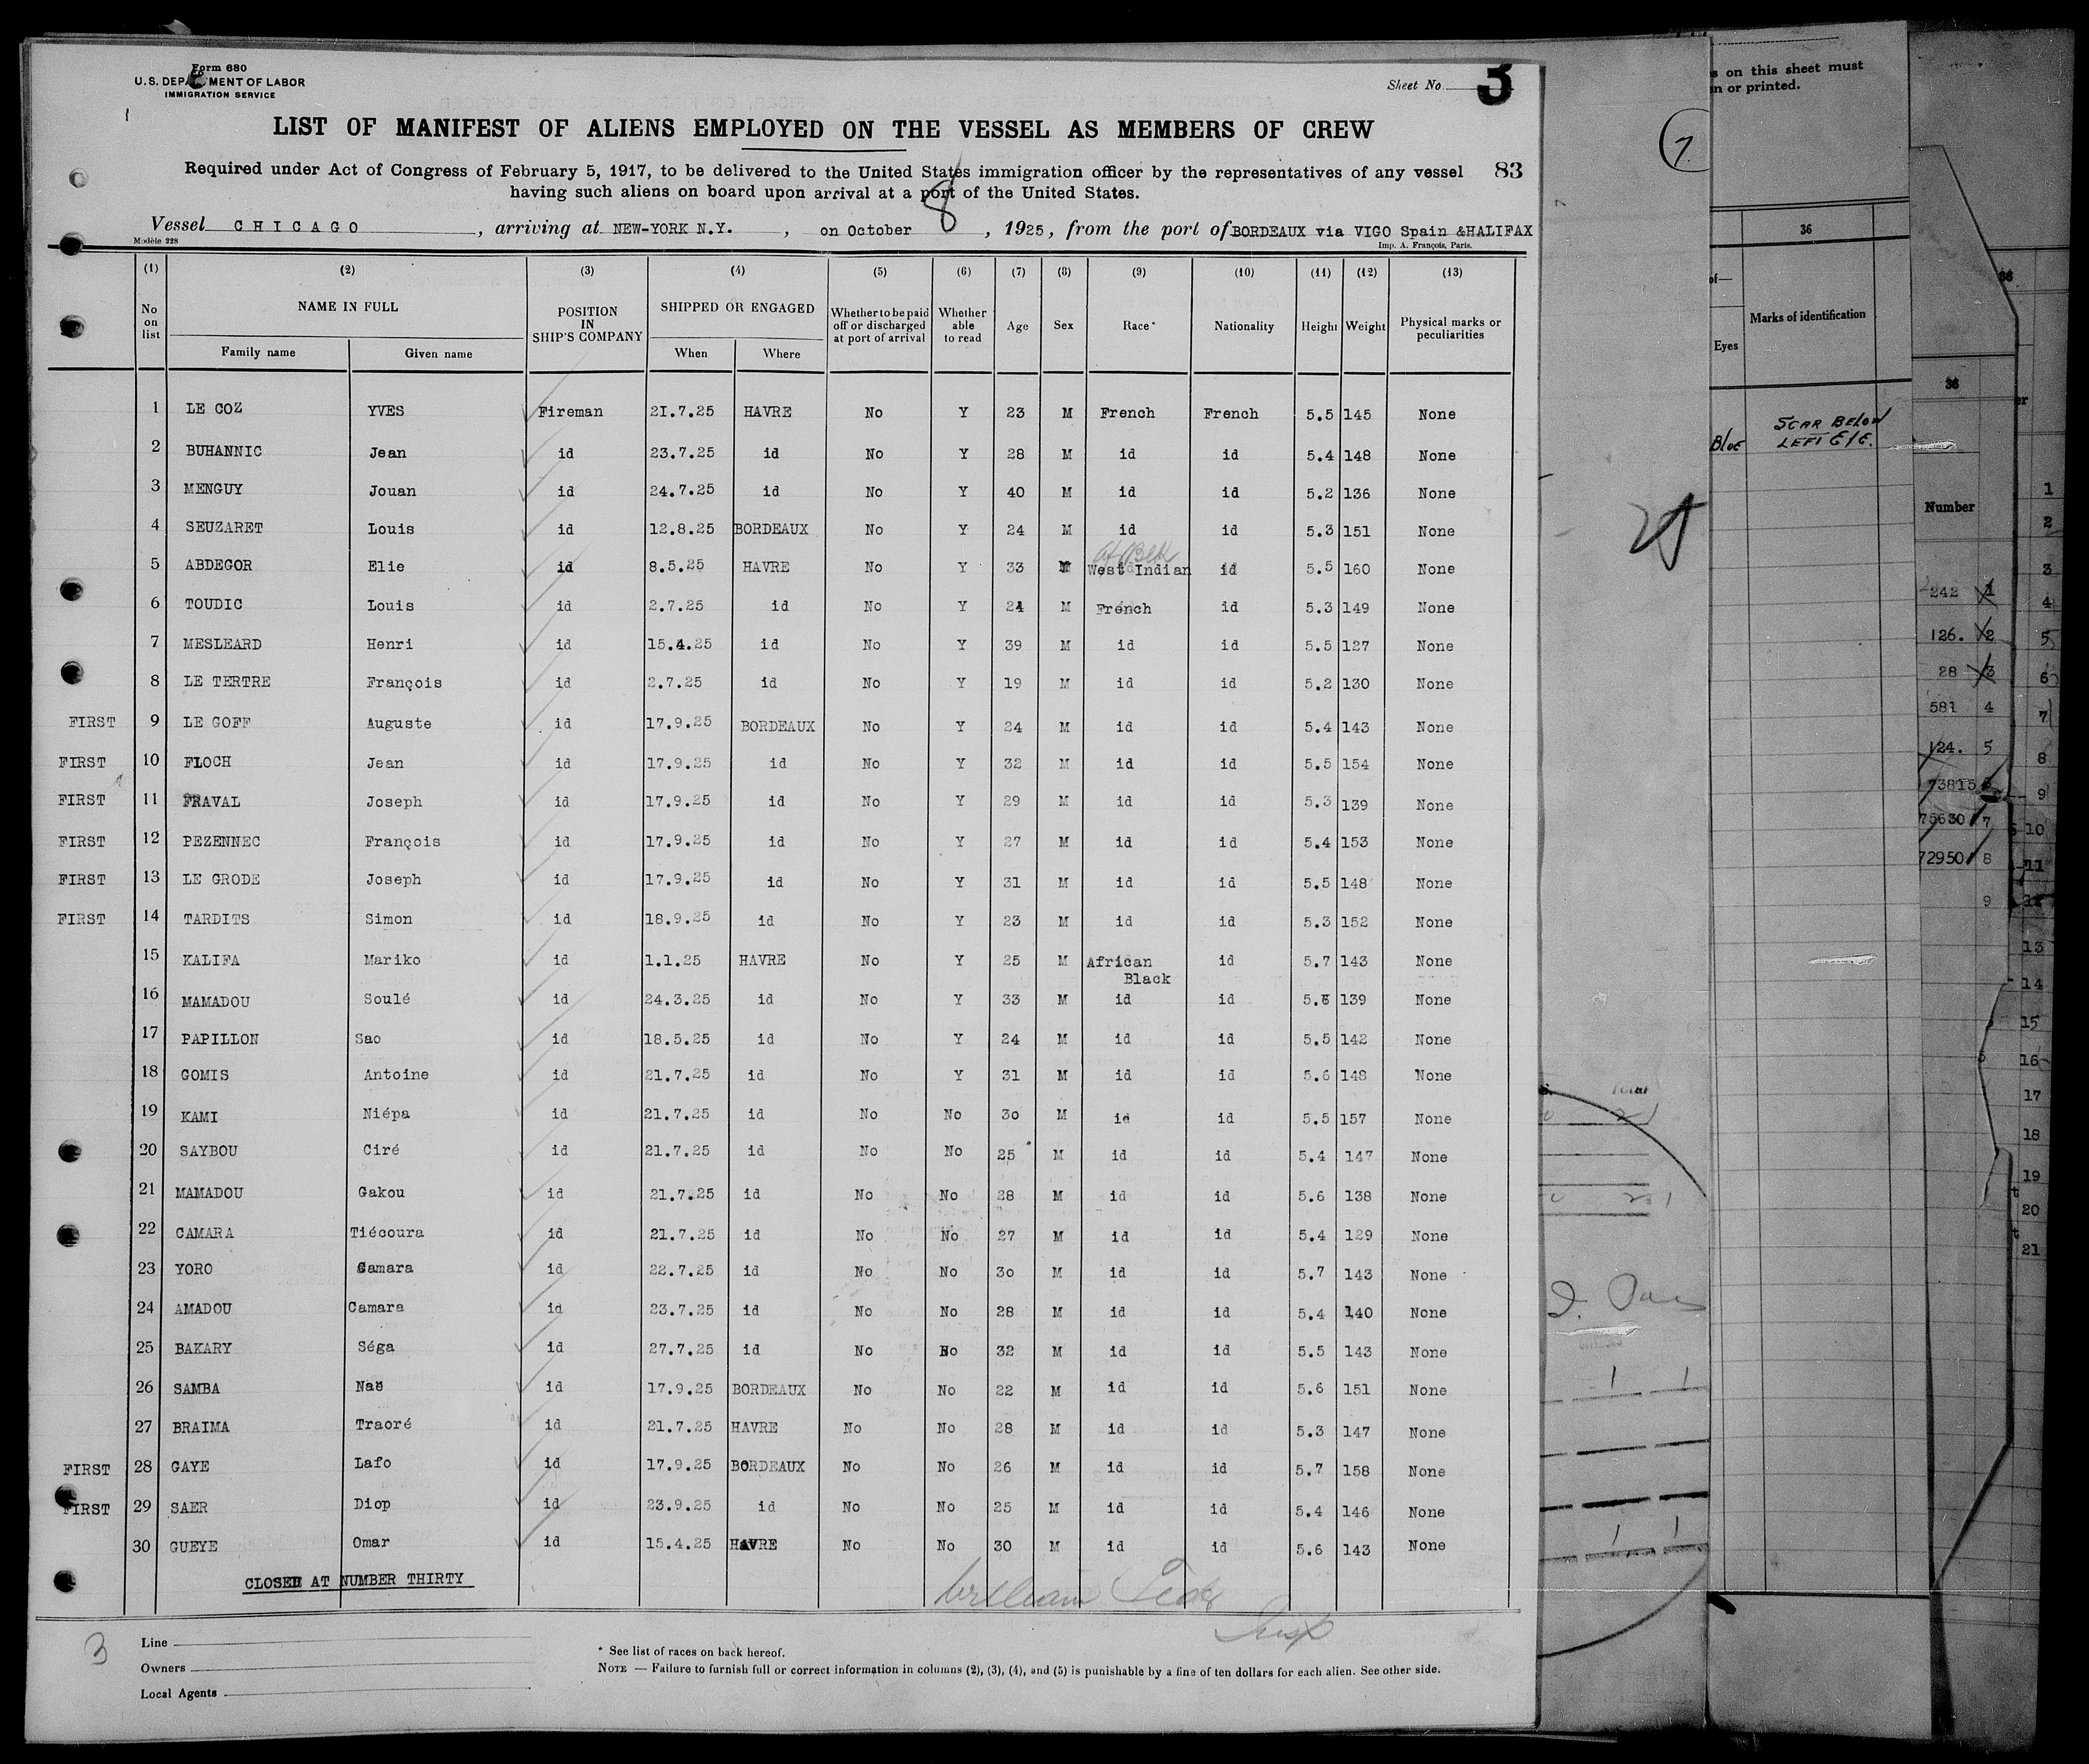 Form 680
U.S. DEPARTMENT OF LABOR
IMMIGRATION SERVICE
Sheet No. 3
LIST OF MANIFEST OF ALIENS EMPLOYED ON THE VESSEL AS MEMBERS OF CREW
Required under Act of Congress of February 5, 1917, to be delivered to the United States immigration officer by the representatives of any vessel 83
having such aliens on board upon arrival at a port of the United States.
Vessel CHICAGO, arriving at NEW-YORK N.Y., on October 8, 1925, from the port of BORDEAUX via VIGO Spain &HALIFAX
Modèle 228
Imp. A. François, Paris.
(1) (2) (3) (4) (5) (6) (7) (8) (9) (10) (11) (12) (13)
No on list NAME IN FULL Family name Given name POSITION IN SHIP'S COMPANY SHIPPED OR ENGAGED When Where Whether to be paid off or discharged at port of arrival Whether able to read Age Sex Race* Nationality Height Weight Physical marks or peculiarities
1 LE COZ YVES Fireman 21.7.25 HAVRE No Y 23 M French French 5.5 145 None
2 BUHANNIC Jean id 23.7.25 id No Y 28 M id id 5.4 148 None
3 MENGUY Jouan id 24.7.25 id No Y 40 M id id 5.2 136 None
4 SEUZARET Louis id 12.8.25 BORDEAUX No Y 24 M id id 5.3 151 None
5 ABDEGOR Elie id 8.5.25 HAVRE No Y 33 M West Indian id 5.5 160 None
6 TOUDIC Louis id 2.7.25 id No Y 24 M French id 5.3 149 None
7 MESLEARD Henri id 15.4.25 id No Y 39 M id id 5.5 127 None
8 LE TERTRE François id 2.7.25 id No Y 19 M id id 5.2 130 None
FIRST 9 LE GOFF Auguste id 17.9.25 BORDEAUX No Y 24 M id id 5.4 143 None
FIRST 10 FLOCH Jean id 17.9.25 id No Y 32 M id id 5.5 154 None
FIRST 11 FRAVAL Joseph id 17.9.25 id No Y 29 M id id 5.3 139 None
FIRST 12 PEZENNEC François id 17.9.25 id No Y 27 M id id 5.4 153 None
FIRST 13 LE GRODE Joseph id 17.9.25 id No Y 31 M id id 5.5 148 None
FIRST 14 TARDITS Simon id 18.9.25 id No Y 23 M id id 5.3 152 None
15 KALIFA Mariko id 1.1.25 HAVRE No Y 25 M African Black id 5.7 143 None
16 MAMADOU Soulé id 24.3.25 id No Y 33 M id id 5.6 139 None
17 PAPILLON Sao id 18.5.25 id No Y 24 M id id 5.5 142 None
18 GOMIS Antoine id 21.7.25 id No Y 31 M id id 5.6 148 None
19 KAMI Niépa id 21.7.25 id No No 30 M id id 5.5 157 None
20 SAYBOU Ciré id 21.7.25 id No No 25 M id id 5.4 147 None
21 MAMADOU Gakou id 21.7.25 id No No 28 M id id 5.6 138 None
22 CAMARA Tiécoura id 21.7.25 id No No 27 M id id 5.4 129 None
23 YORO Camara id 22.7.25 id No No 30 M id id 5.7 143 None
24 AMADOU Camara id 23.7.25 id No No 28 M id id 5.4 140 None
25 BAKARY Séga id 27.7.25 id No No 32 M id id 5.5 143 None
26 SAMBA Naë id 17.9.25 BORDEAUX No No 22 M id id 5.6 151 None
27 BRAIMA Traoré id 21.7.25 HAVRE No No 28 M id id 5.3 147 None
FIRST 28 GAYE Lafo id 17.9.25 BORDEAUX No No 26 M id id 5.7 158 None
FIRST 29 SAER Diop id 23.9.25 id No No 25 M id id 5.4 146 None
30 GUEYE Omar id 15.4.25 HAVRE No No 30 M id id 5.6 143 None
CLOSED AT NUMBER THIRTY
William
Insp
3
Line
Owners
Local Agents
* See list of races on back hereof.
NOTE — Failure to furnish full or correct information in columns (2), (3), (4), and (5) is punishable by a fine of ten dollars for each alien. See other side.
7
Total
s on this sheet must
n or printed.
36
of—
Marks of identification
Eyes
Blue SCAR BELOW
LEFT EYE.
36
36
Number
242 1
126. 2
28 3
581 4
124. 5
73815 6
75630 7
72950 8
9
1
2
3
4
5
6
7
8
9
10
11
12
13
14
15
16
17
18
19
20
21